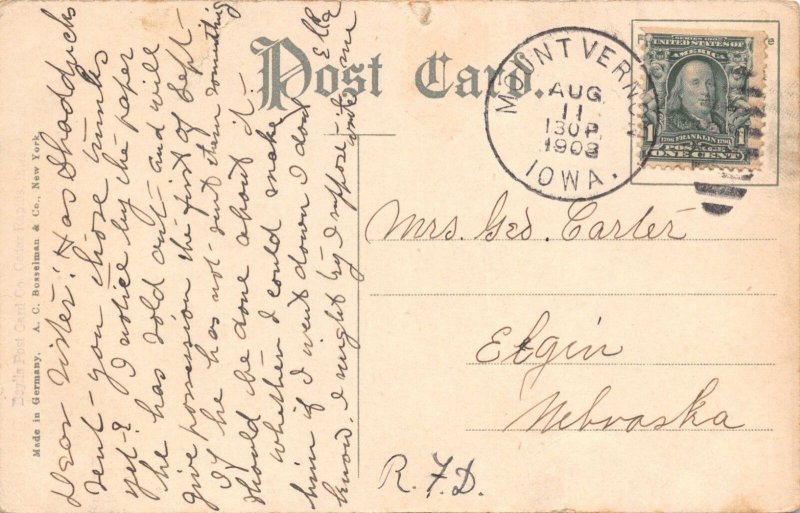 Post Card.
MOUNT VERNON
AUG
11
130P
1908
IOWA.
SERIES 1902
UNITED STATES OF
AMERICA
FRANKLIN
1 1
ONE CENT
Mrs. Geo. Carter
Elgin
Nebraska
R.F.D.
Dear Sister: Has Shadduck
sent you those trunks
yet? I notice by the paper
he has sold out and will
give possession the first of Sept-
If he has not sent them something
should be done about it.
whether I could make
him if I went down I don't
know. I might try I suppose.
write me
Ella
Made in Germany. A. C. Bosselman & Co., New York.
Post Card Co.